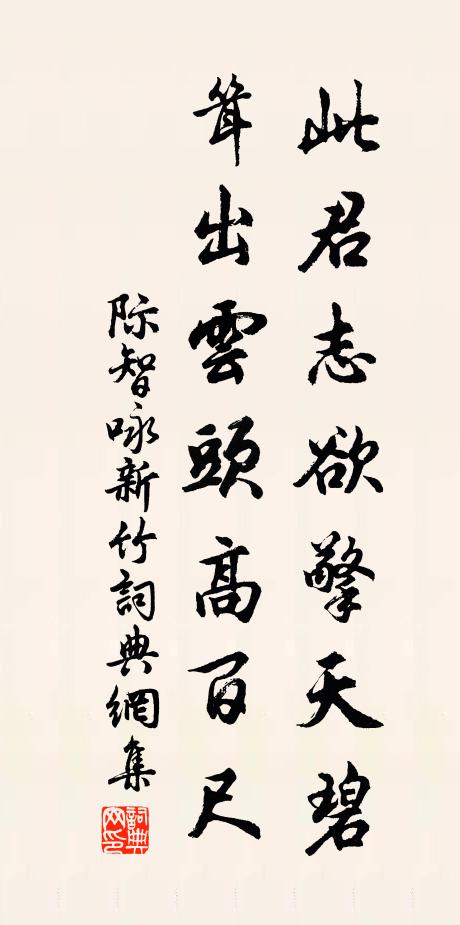 此君志欲擎天碧
耸出雲頭高百尺
际智咏新竹詞典網集
詞典网印